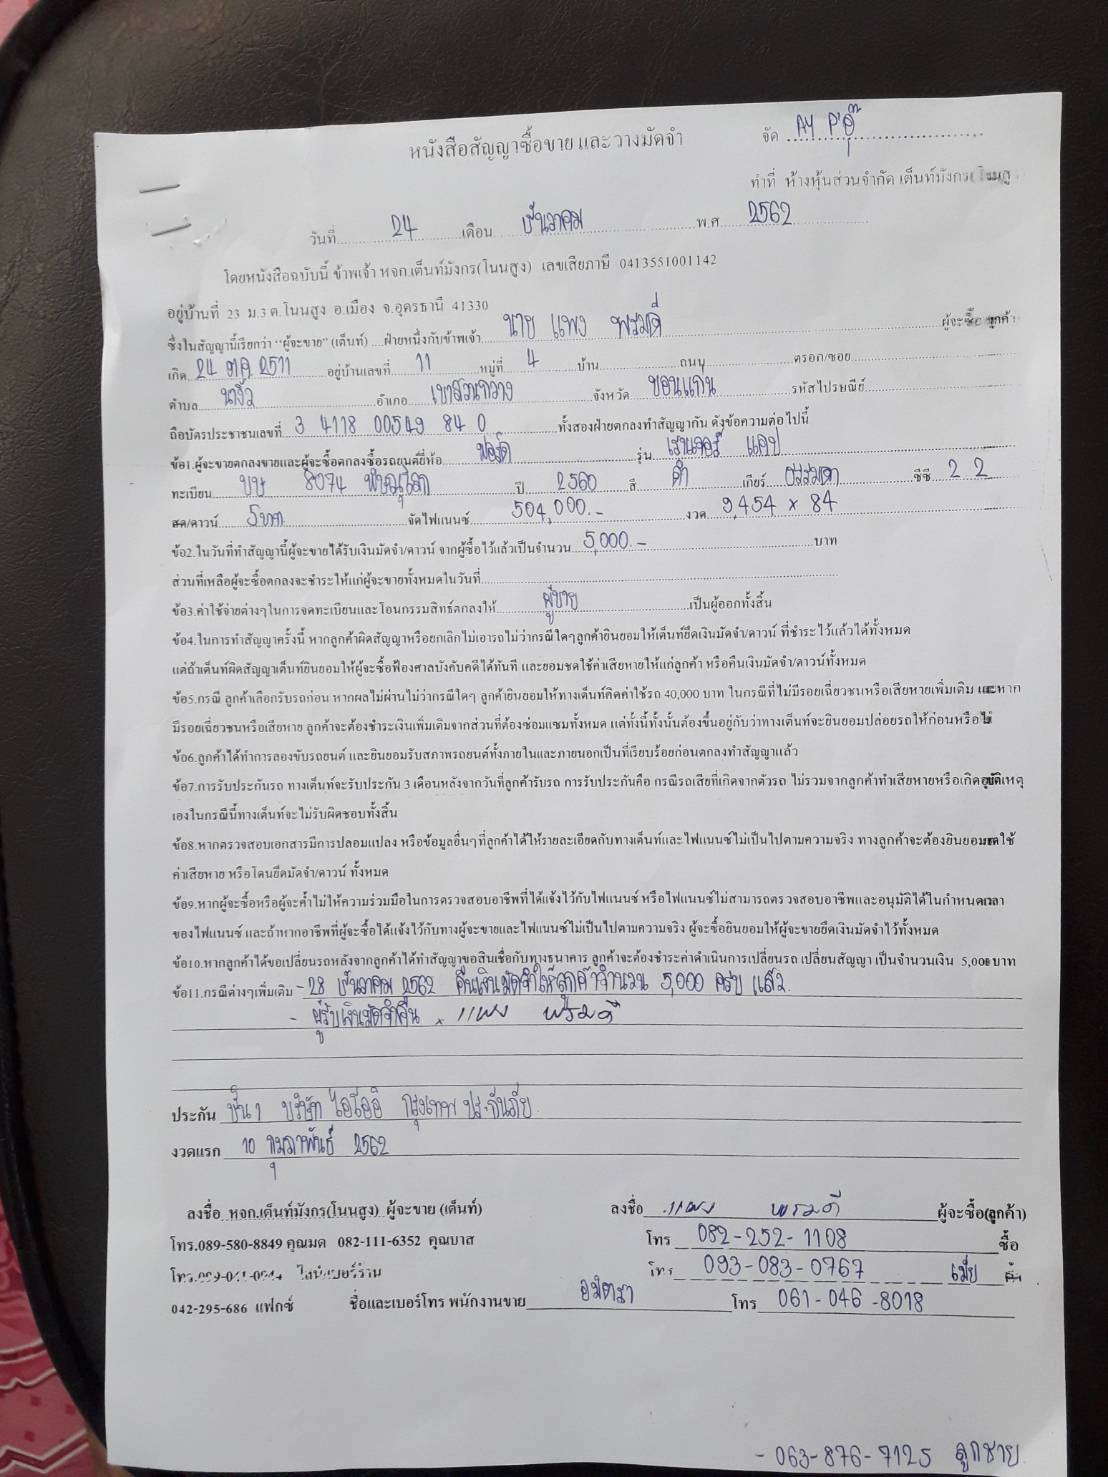 หนังสือสัญญาซื้อขาย และ วางมัดจำ
จัด AY P'อุ๊
ทำที่ ห้างหุ้นส่วนจำกัด เต็นท์มังกร
วันที่ 24 เดือน ธันวาคม พ.ศ 2562
โดยหนังสือฉบับนี้ ข้าพเจ้า หจก.เต็นท์มังกร(โนนสูง) เลขเสียภาษี 0413551001142
อยู่บ้านที่ 23 ม.3 ต.โนนสูง อ.เมือง จ.อุดรธานี 41330
ซึ่งในสัญญานี้เรียกว่า "ผู้จะขาย" (เต็นท์) ฝ่ายหนึ่งกับข้าพเจ้า นาย แพง พรมดี ผู้จะซื้อ ลูกค้า
เกิด 24 ตค 2511 อยู่บ้านเลขที่ 11 หมู่ที่ 4 บ้าน ถนน ตรอก/ซอย
ตำบล นางิ้ว อำเภอ เขาสวนกวาง จังหวัด ขอนแก่น รหัสไปรษณีย์
ถือบัตรประชาชนเลขที่ 3 4118 00549 84 0 ทั้งสองฝ่ายตกลงทำสัญญากัน ดังข้อความต่อไปนี้
ข้อ1.ผู้จะขายตกลงขายและผู้จะซื้อตกลงซื้อรถยนต์ยี่ห้อ ฟอร์ด รุ่น เรนเจอร์ แคป
ทะเบียน บษ 8074 พิษณุโลก ปี 2560 สี ดำ เกียร์ ธรรมดา ซีซี 2 2
สด/ดาวน์ 5บาท จัดไฟแนนซ์ 504,000.- งวด 9,454 x 84
ข้อ2.ในวันที่ทำสัญญานี้ผู้จะขายได้รับเงินมัดจำ/ดาวน์ จากผู้ซื้อไว้แล้วเป็นจำนวน 5,000.- บาท
ส่วนที่เหลือผู้จะซื้อตกลงจะชำระให้แก่ผู้จะขายทั้งหมดในวันที่
ข้อ3.ค่าใช้จ่ายต่างๆในการจดทะเบียนและโอนกรรมสิทธ์ตกลงให้ ผู้ขาย เป็นผู้ออกทั้งสิ้น
ข้อ4.ในการทำสัญญาครั้งนี้ หากลูกค้าผิดสัญญาหรือยกเลิกไม่เอารถไม่ว่ากรณีใดๆลูกค้ายินยอมให้เต็นท์ยึดเงินมัดจำ/ดาวน์ ที่ชำระไว้แล้วได้ทั้งหมด
แต่ถ้าเต็นท์ผิดสัญญาเต็นท์ยินยอมให้ผู้จะซื้อฟ้องศาลบังคับคดีได้ทันที และยอมชดใช้ค่าเสียหายให้แก่ลูกค้า หรือคืนเงินมัดจำ/ดาวน์ทั้งหมด
ข้อ5.กรณี ลูกค้าเลือกรับรถก่อน หากผลไม่ผ่านไม่ว่ากรณีใดๆ ลูกค้ายินยอมให้ทางเต็นท์คิดค่าใช้รถ 40,000 บาท ในกรณีที่ไม่มีรอยเฉี่ยวชนหรือเสียหายเพิ่มเติม และหาก
มีรอยเฉี่ยวชนหรือเสียหาย ลูกค้าจะต้องชำระเงินเพิ่มเติมจากส่วนที่ต้องซ่อมแซมทั้งหมด แต่ทั้งนี้ทั้งนั้นต้องขึ้นอยู่กับว่าทางเต็นท์จะยินยอมปล่อยรถให้ก่อนหรือไม่
ข้อ6.ลูกค้าได้ทำการลองขับรถยนต์ และยินยอมรับสภาพรถยนต์ทั้งภายในและภายนอกเป็นที่เรียบร้อยก่อนตกลงทำสัญญาแล้ว
ข้อ7.การรับประกันรถ ทางเต็นท์จะรับประกัน 3 เดือนหลังจากวันที่ลูกค้ารับรถ การรับประกันคือ กรณีรถเสียที่เกิดจากตัวรถ ไม่รวมจากลูกค้าทำเสียหายหรือเกิดอุบัติเหตุ
เองในกรณีนี้ทางเต็นท์จะไม่รับผิดชอบทั้งสิ้น
ข้อ8.หากตรวจสอบเอกสารมีการปลอมแปลง หรือข้อมูลอื่นๆที่ลูกค้าได้ให้รายละเอียดกับทางเต็นท์และไฟแนนซ์ไม่เป็นไปตามความจริง ทางลูกค้าจะต้องยินยอมชดใช้
ค่าเสียหาย หรือโดนยึดมัดจำ/ดาวน์ ทั้งหมด
ข้อ9.หากผู้จะซื้อหรือผู้จะค้ำไม่ให้ความร่วมมือในการตรวจสอบอาชีพที่ได้แจ้งไว้กับไฟแนนซ์ หรือไฟแนนซ์ไม่สามารถตรวจสอบอาชีพและอนุมัติได้ในกำหนดเวลา
ของไฟแนนซ์ และถ้าหากอาชีพที่ผู้จะซื้อได้แจ้งไว้กับทางผู้จะขายและไฟแนนซ์ไม่เป็นไปตามความจริง ผู้จะซื้อยินยอมให้ผู้จะขายยึดเงินมัดจำไว้ทั้งหมด
ข้อ10.หากลูกค้าได้ขอเปลี่ยนรถหลังจากลูกค้าได้ทำสัญญาขอสินเชื่อกับทางธนาคาร ลูกค้าจะต้องชำระค่าดำเนินการเปลี่ยนรถ เปลี่ยนสัญญา เป็นจำนวนเงิน 5,000 บาท
ข้อ11.กรณีต่างๆเพิ่มเติม - 28 ธันวาคม 2562 คืนเงินมัดจำให้ลูกค้าจำนวน 5,000 ครบ แล้ว
- ผู้รับเงินมัดจำคืน x แพง พรมดี
ประกัน ชั้น 1 บริษัท ไอโออิ กรุงเทพ ประกันภัย
งวดแรก 10 กุมภาพันธ์ 2562
ลงชื่อ หจก.เต็นท์มังกร(โนนสูง) ผู้จะขาย (เต็นท์) ลงชื่อ แพง พรมดี ผู้จะซื้อ(ลูกค้า)
โทร.089-580-8849 คุณมด 082-111-6352 คุณบาส โทร 082-252-1108 ซื้อ
ไลน์เบอร์ร้าน โทร 093-083-0767 เมีย
042-295-686 แฟกซ์ ชื่อและเบอร์โทร พนักงานขาย อมิตรา โทร 061-046-8018
- 063-876-7125 ลูกชาย